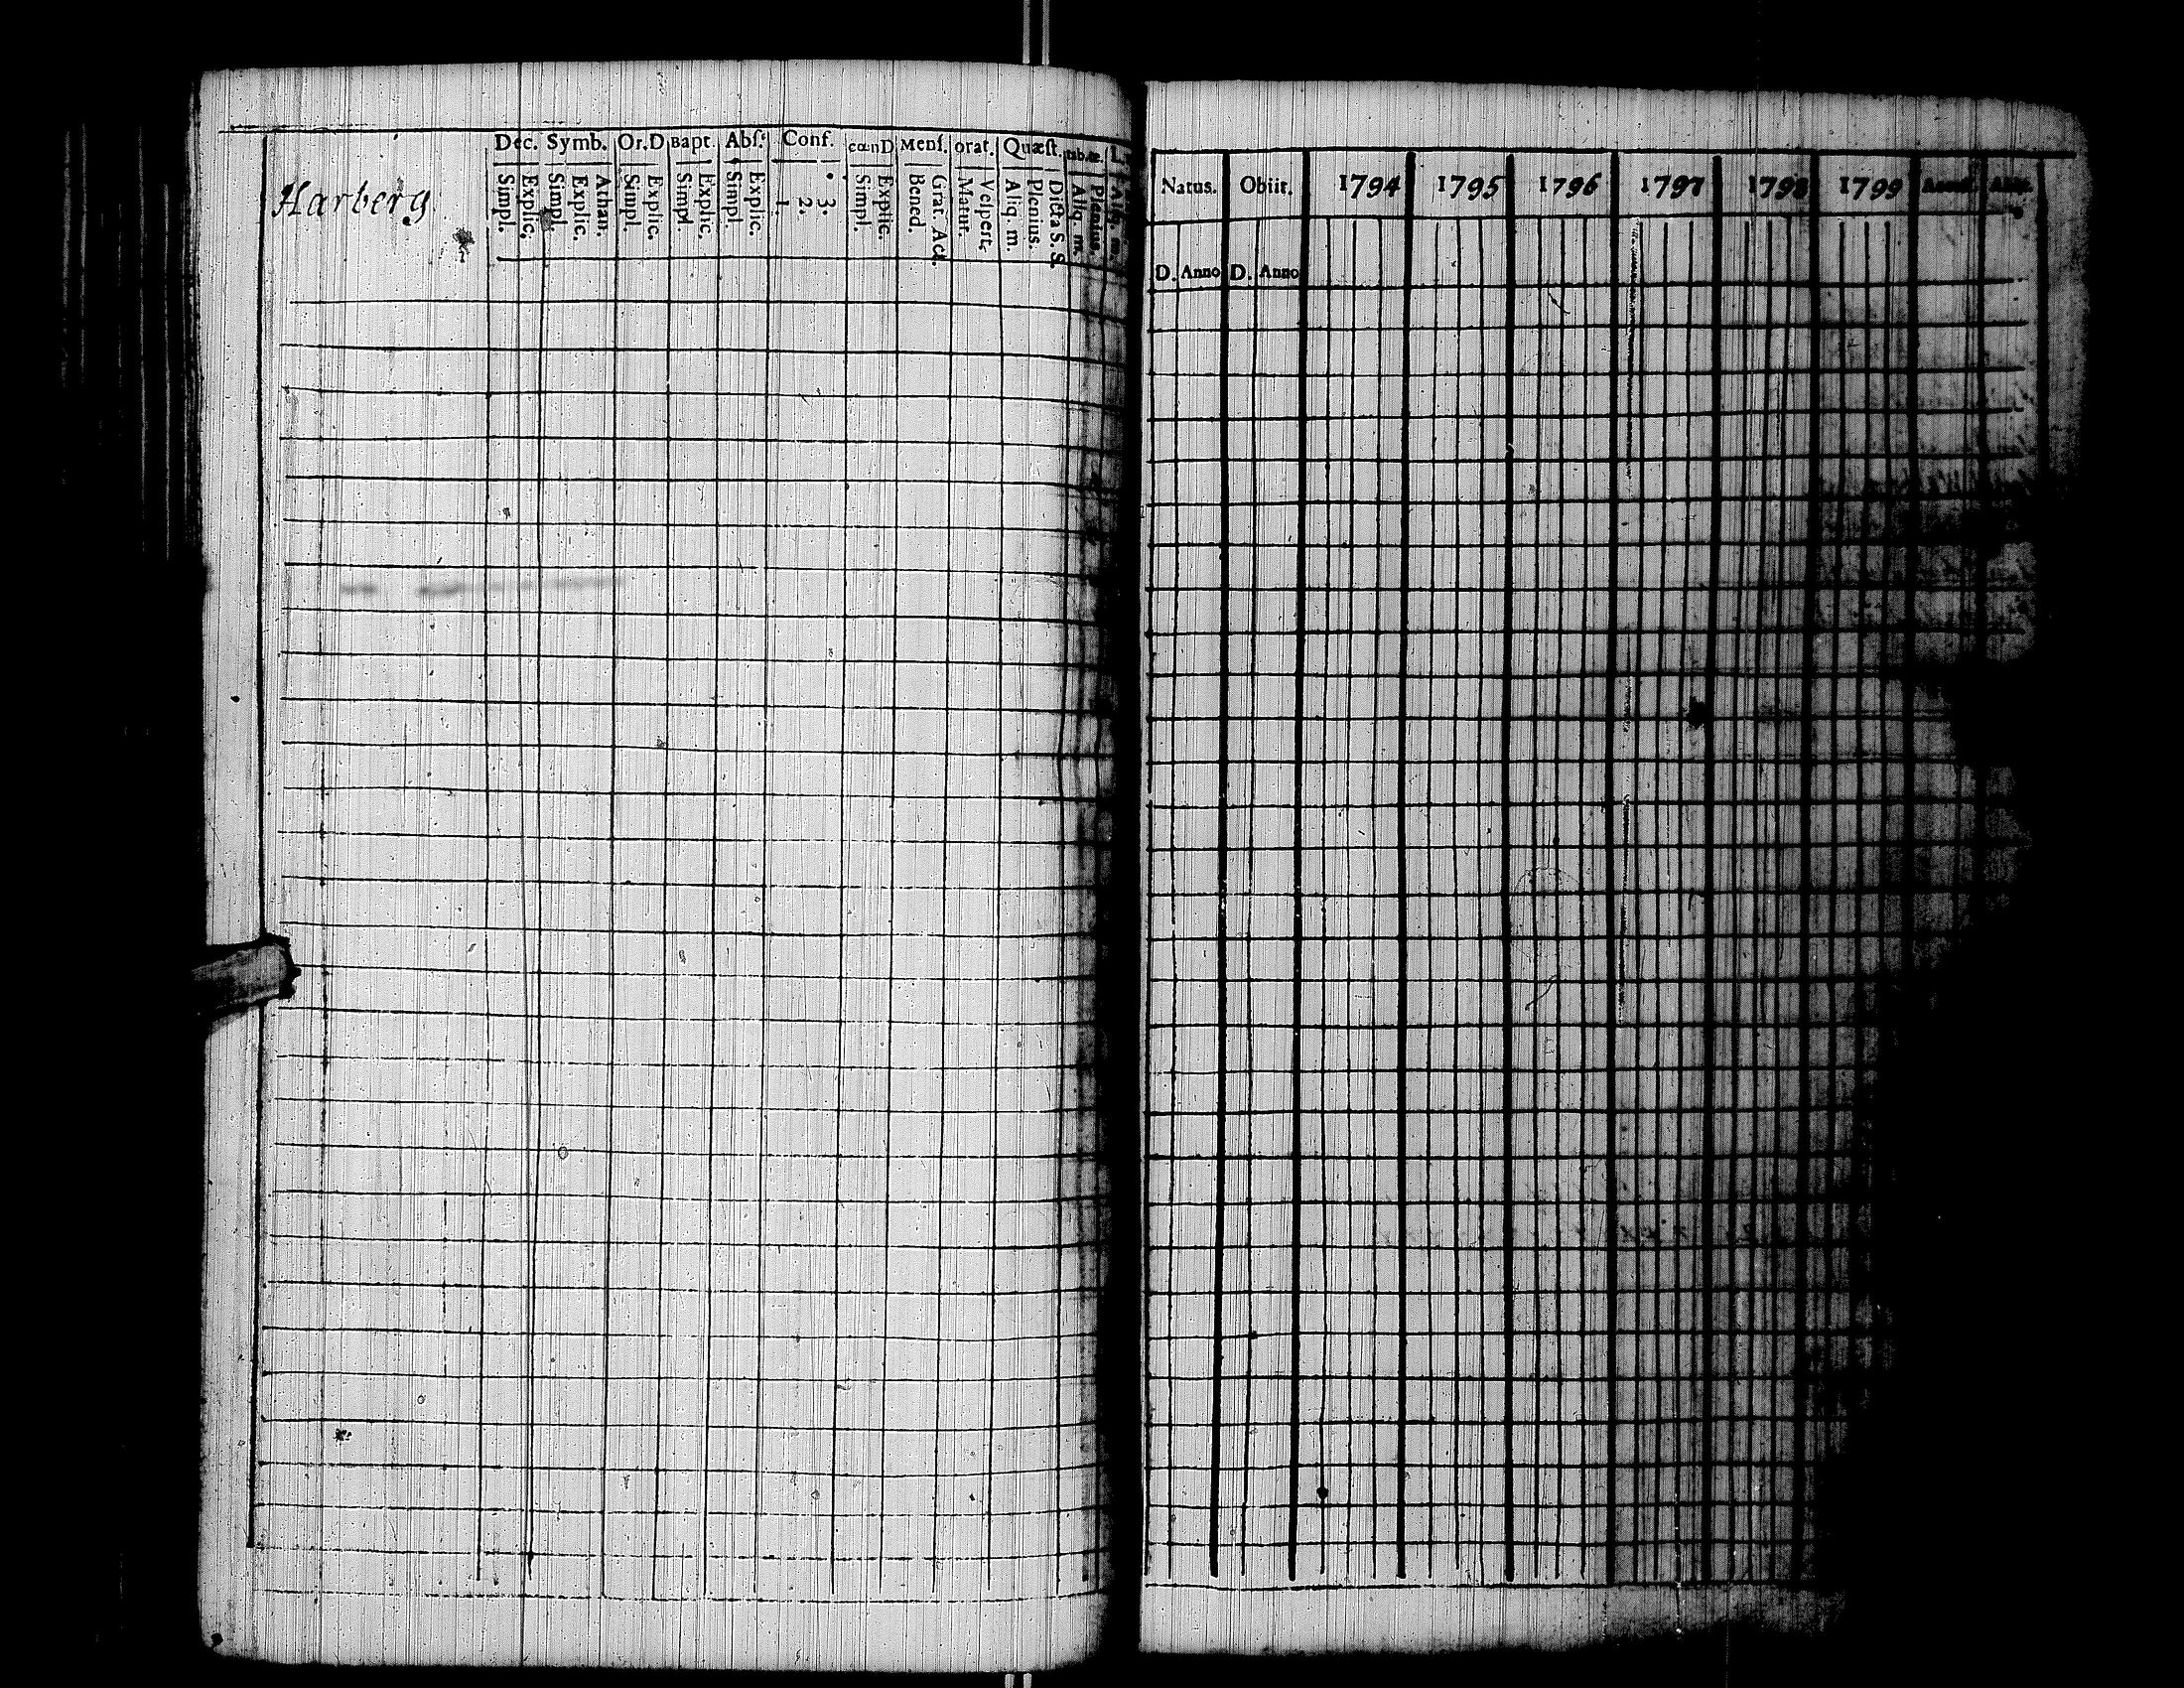 Harberg
Dec. Symb. Or.D Bapt. Abſ. Conf. cœnD Menſ. orat. Quæſt.
Simpl. Explic. Simpl. Explic. Athan. Simpl. Explic. Simpl. Explic. Simpl. Explic. 1. 2. 3. Simpl. Explic. Bened. Grat. Act. Matut. Veſpert. Aliq. m. Plenius. Dicta S. S. Aliq. m. Plenius. Aliq. m.
Natus. Obiit. 1794 1795 1796 1797 1798 1799
D. Anno D. Anno